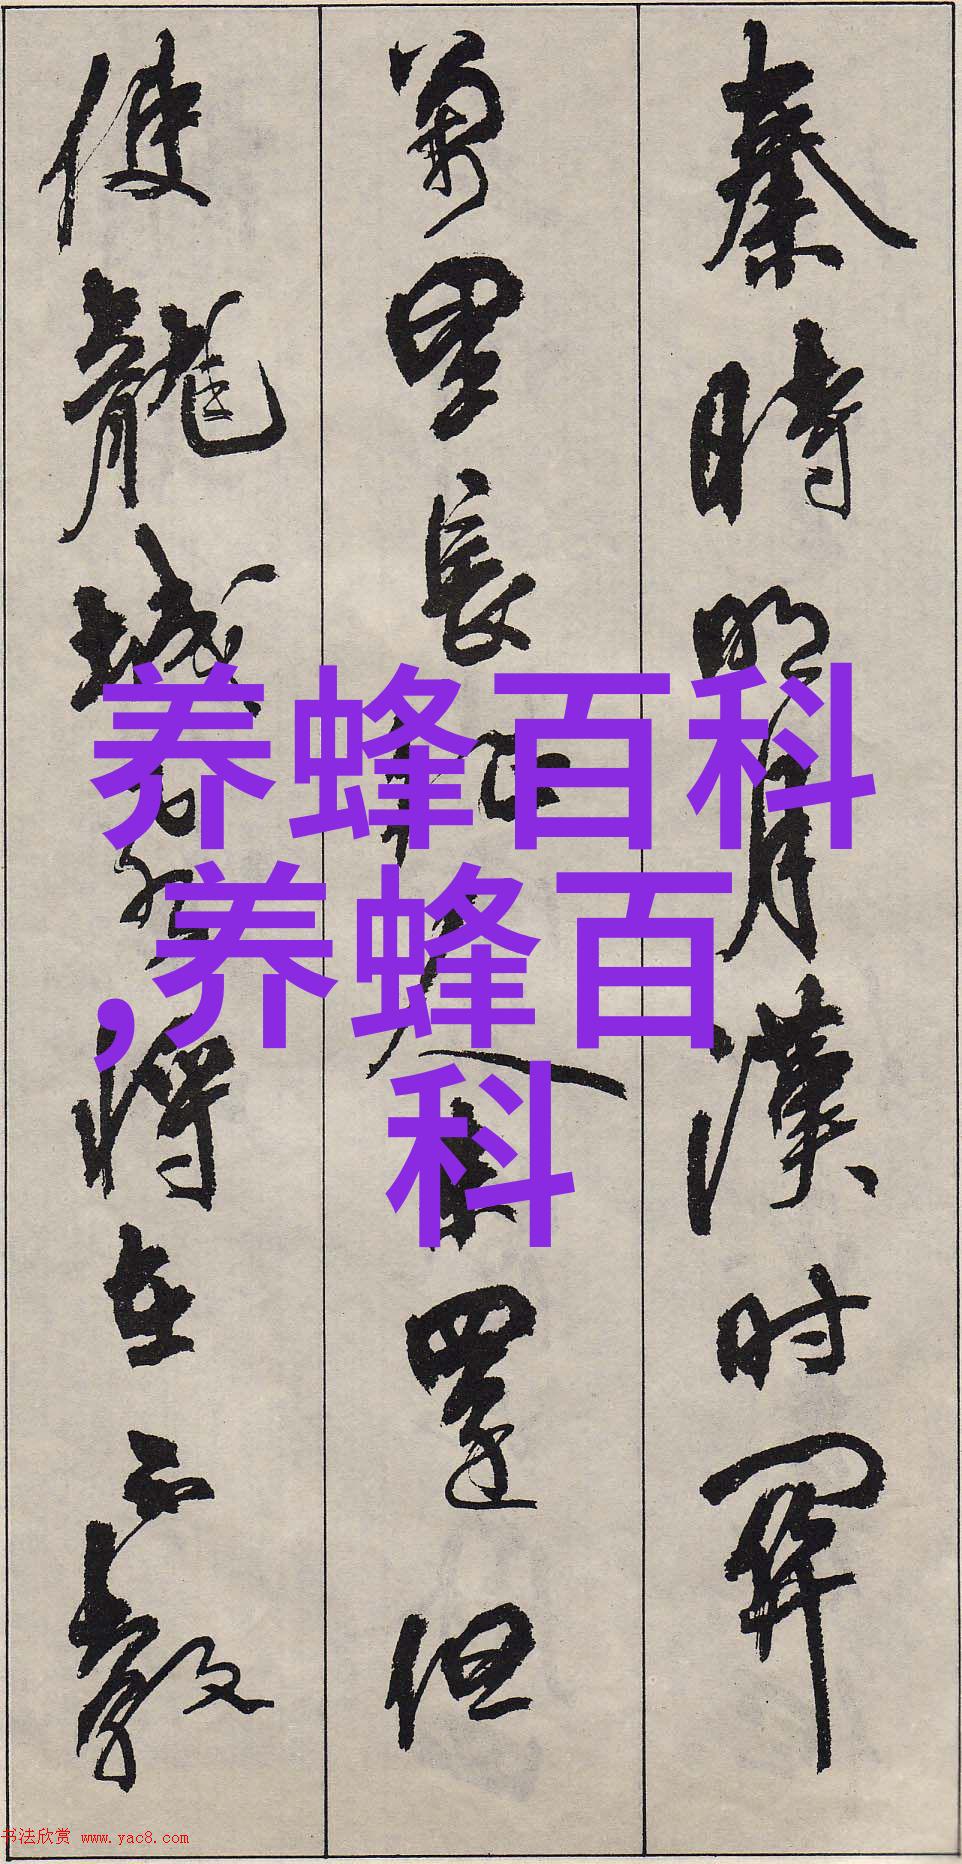 秦時明月漢时關
萬里長征人未還但
使龍城飛將在不教
养蜂百科
,养蜂百
科
书法欣赏 www.yac8.com